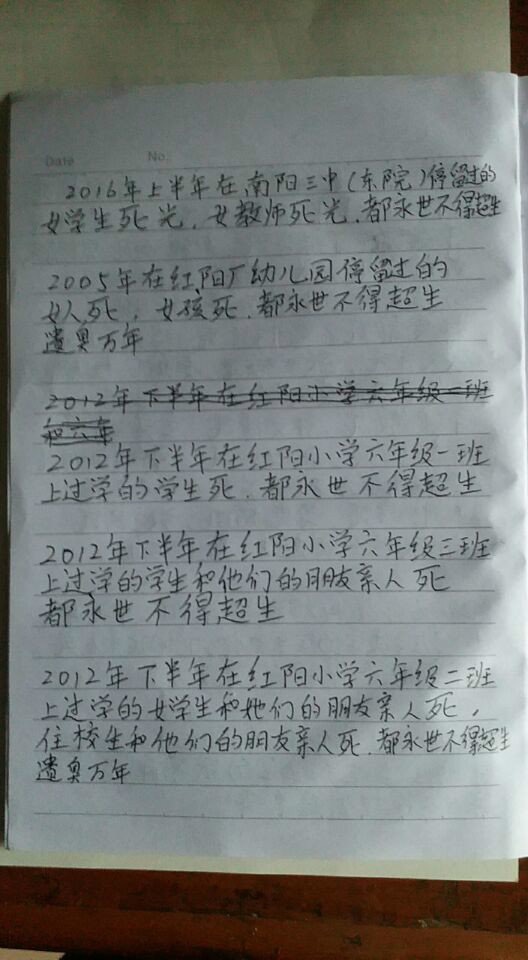 Date No.
2016年上半年在南阳三中(东院)停留过的
女学生死光.女教师死光.都永世不得超生
2005年在红阳厂幼儿园停留过的
女人死,女孩死.都永世不得超生
遗臭万年
2012年下半年在红阳小学六年级一班
和六年
2012年下半年在红阳小学六年级一班
上过学的学生死.都永世不得超生
2012年下半年在红阳小学六年级三班
上过学的学生和他们的朋友亲人死
都永世不得超生
2012年下半年在红阳小学六年级二班
上过学的女学生和她们的朋友亲人死,
住校生和他们的朋友亲人死.都永世不得超生
遗臭万年